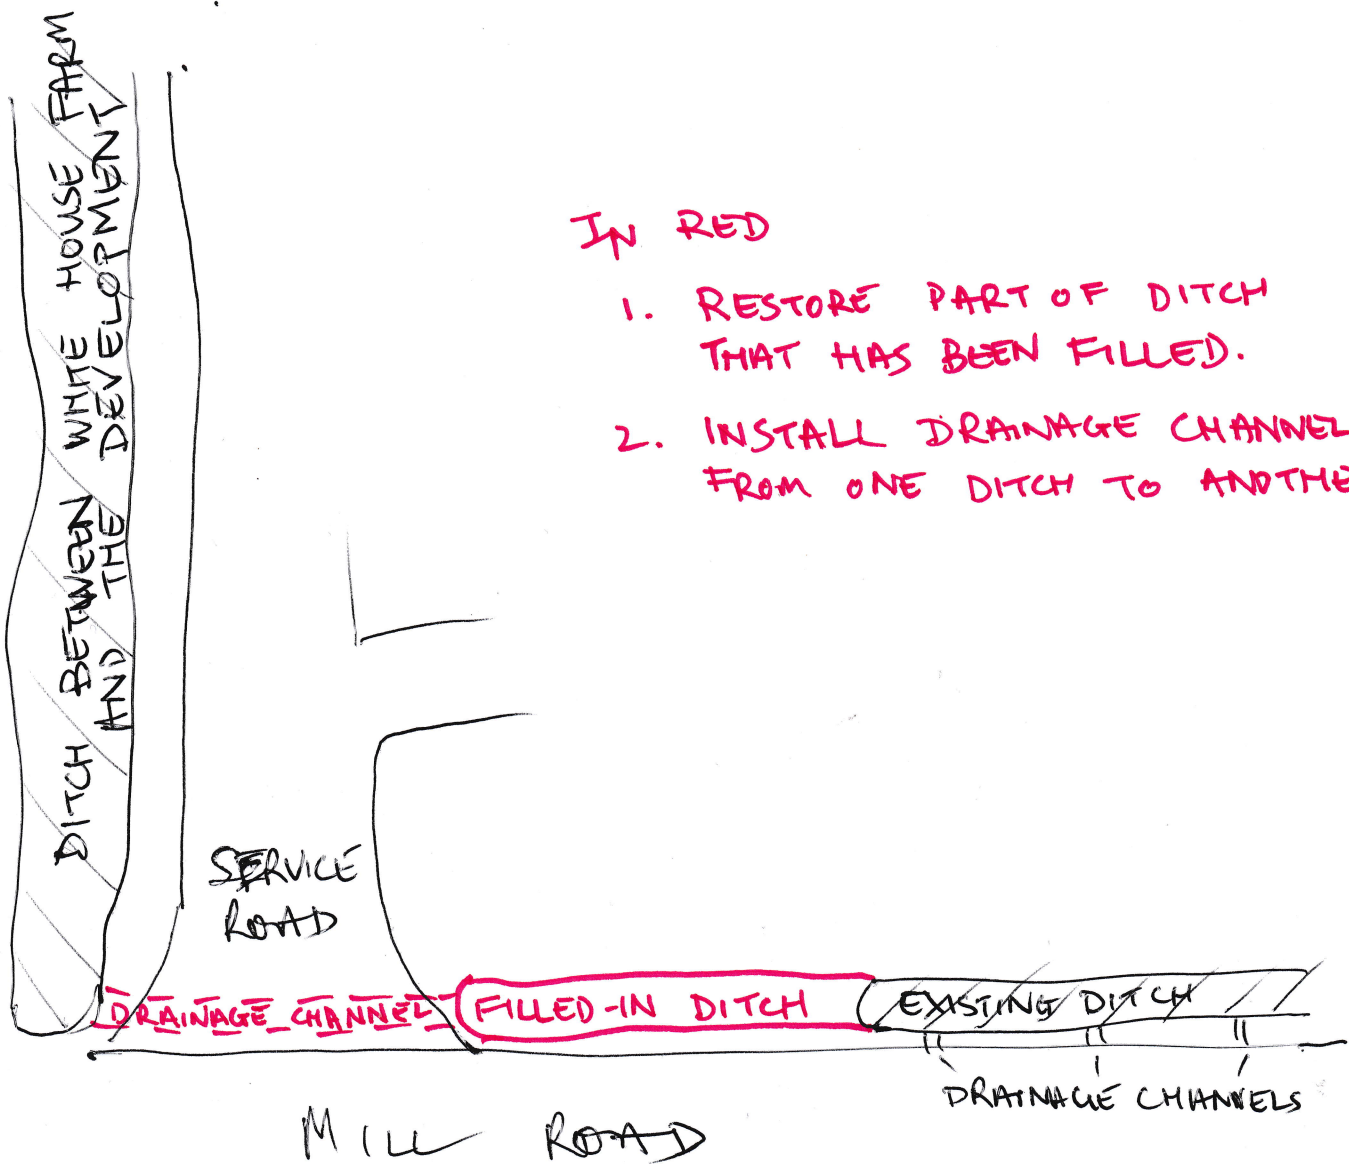 DITCH BETWEEN WHITE HOUSE FARM
AND THE DEVELOPMENT
IN RED
1. RESTORE PART OF DITCH
THAT HAS BEEN FILLED.
2. INSTALL DRAINAGE CHANNEL
FROM ONE DITCH TO ANOTHE
SERVICE
ROAD
DRAINAGE CHANNEL
FILLED-IN DITCH
EXISTING DITCH
DRAINAGE CHANNELS
MILL ROAD